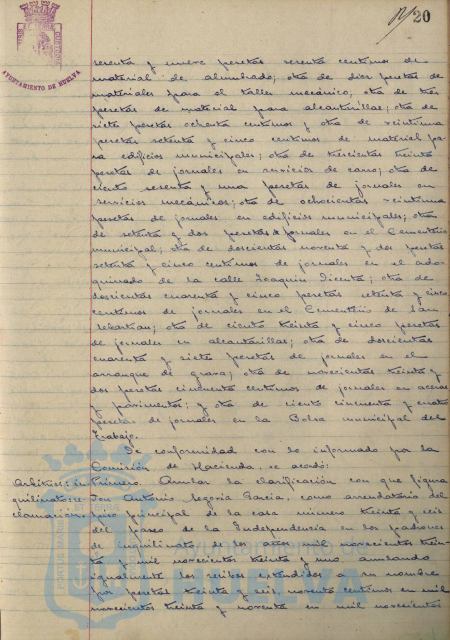 20
AYUNTAMIENTO DE HUELVA
sesenta y nueve pesetas sesenta centimos de
material de alumbrado; otra de dos pesetas de
materiales para el taller mecánico; otra de tres
pesetas de material para alcantarillas; otra de
siete pesetas ochenta centimos y otra de veintiuna
pesetas setenta y cinco centimos de material pa-
ra edificios municipales; otra de trescientas treinta
pesetas de jornales en servicio de carro; otra de
ciento sesenta y una pesetas de jornales en
servicios mecánicos; otra de ochocientas veintiuna
pesetas de jornales en edificios municipales; otra
de setenta y dos pesetas de jornales en el Cementerio
municipal; otra de doscientas noventa y dos pesetas
setenta y cinco centimos de jornales en el ado-
quinado de la calle Joaquin Dicenta; otra de
doscientas cuarenta y cinco pesetas setenta y cinco
centimos de jornales en el Cementerio de San
Sebastian; otra de ciento treinta y cinco pesetas
de jornales en alcantarillas; otra de doscientas
cuarenta y siete pesetas de jornales en el
arranque de grava; otra de novecientas treinta y
dos pesetas cincuenta centimos de jornales en aceras
y pavimentos; y otra de ciento cincuenta y cuatro
pesetas de jornales en la Bolsa municipal del
Trabajo.
De conformidad con lo informado por la
Comisión de Hacienda, se acordó:
Arbitrios: in- Primero. Anular la clarificación con que figura
quilinatos re- Don Antonio Segovia Garcia, como arrendatario del
clamacion. piso principal de la casa número treinta y seis
del paseo de la Independencia en los padrones
de inquilinato de los años mil novecientos trein-
ta y mil novecientos treinta y uno anulando
igualmente los recibos extendidos a su nombre
por pesetas treinta y seis, noventa centimos en mil
novecientos treinta y noventa en mil novecientos
Ayuntamiento de
HUELVA